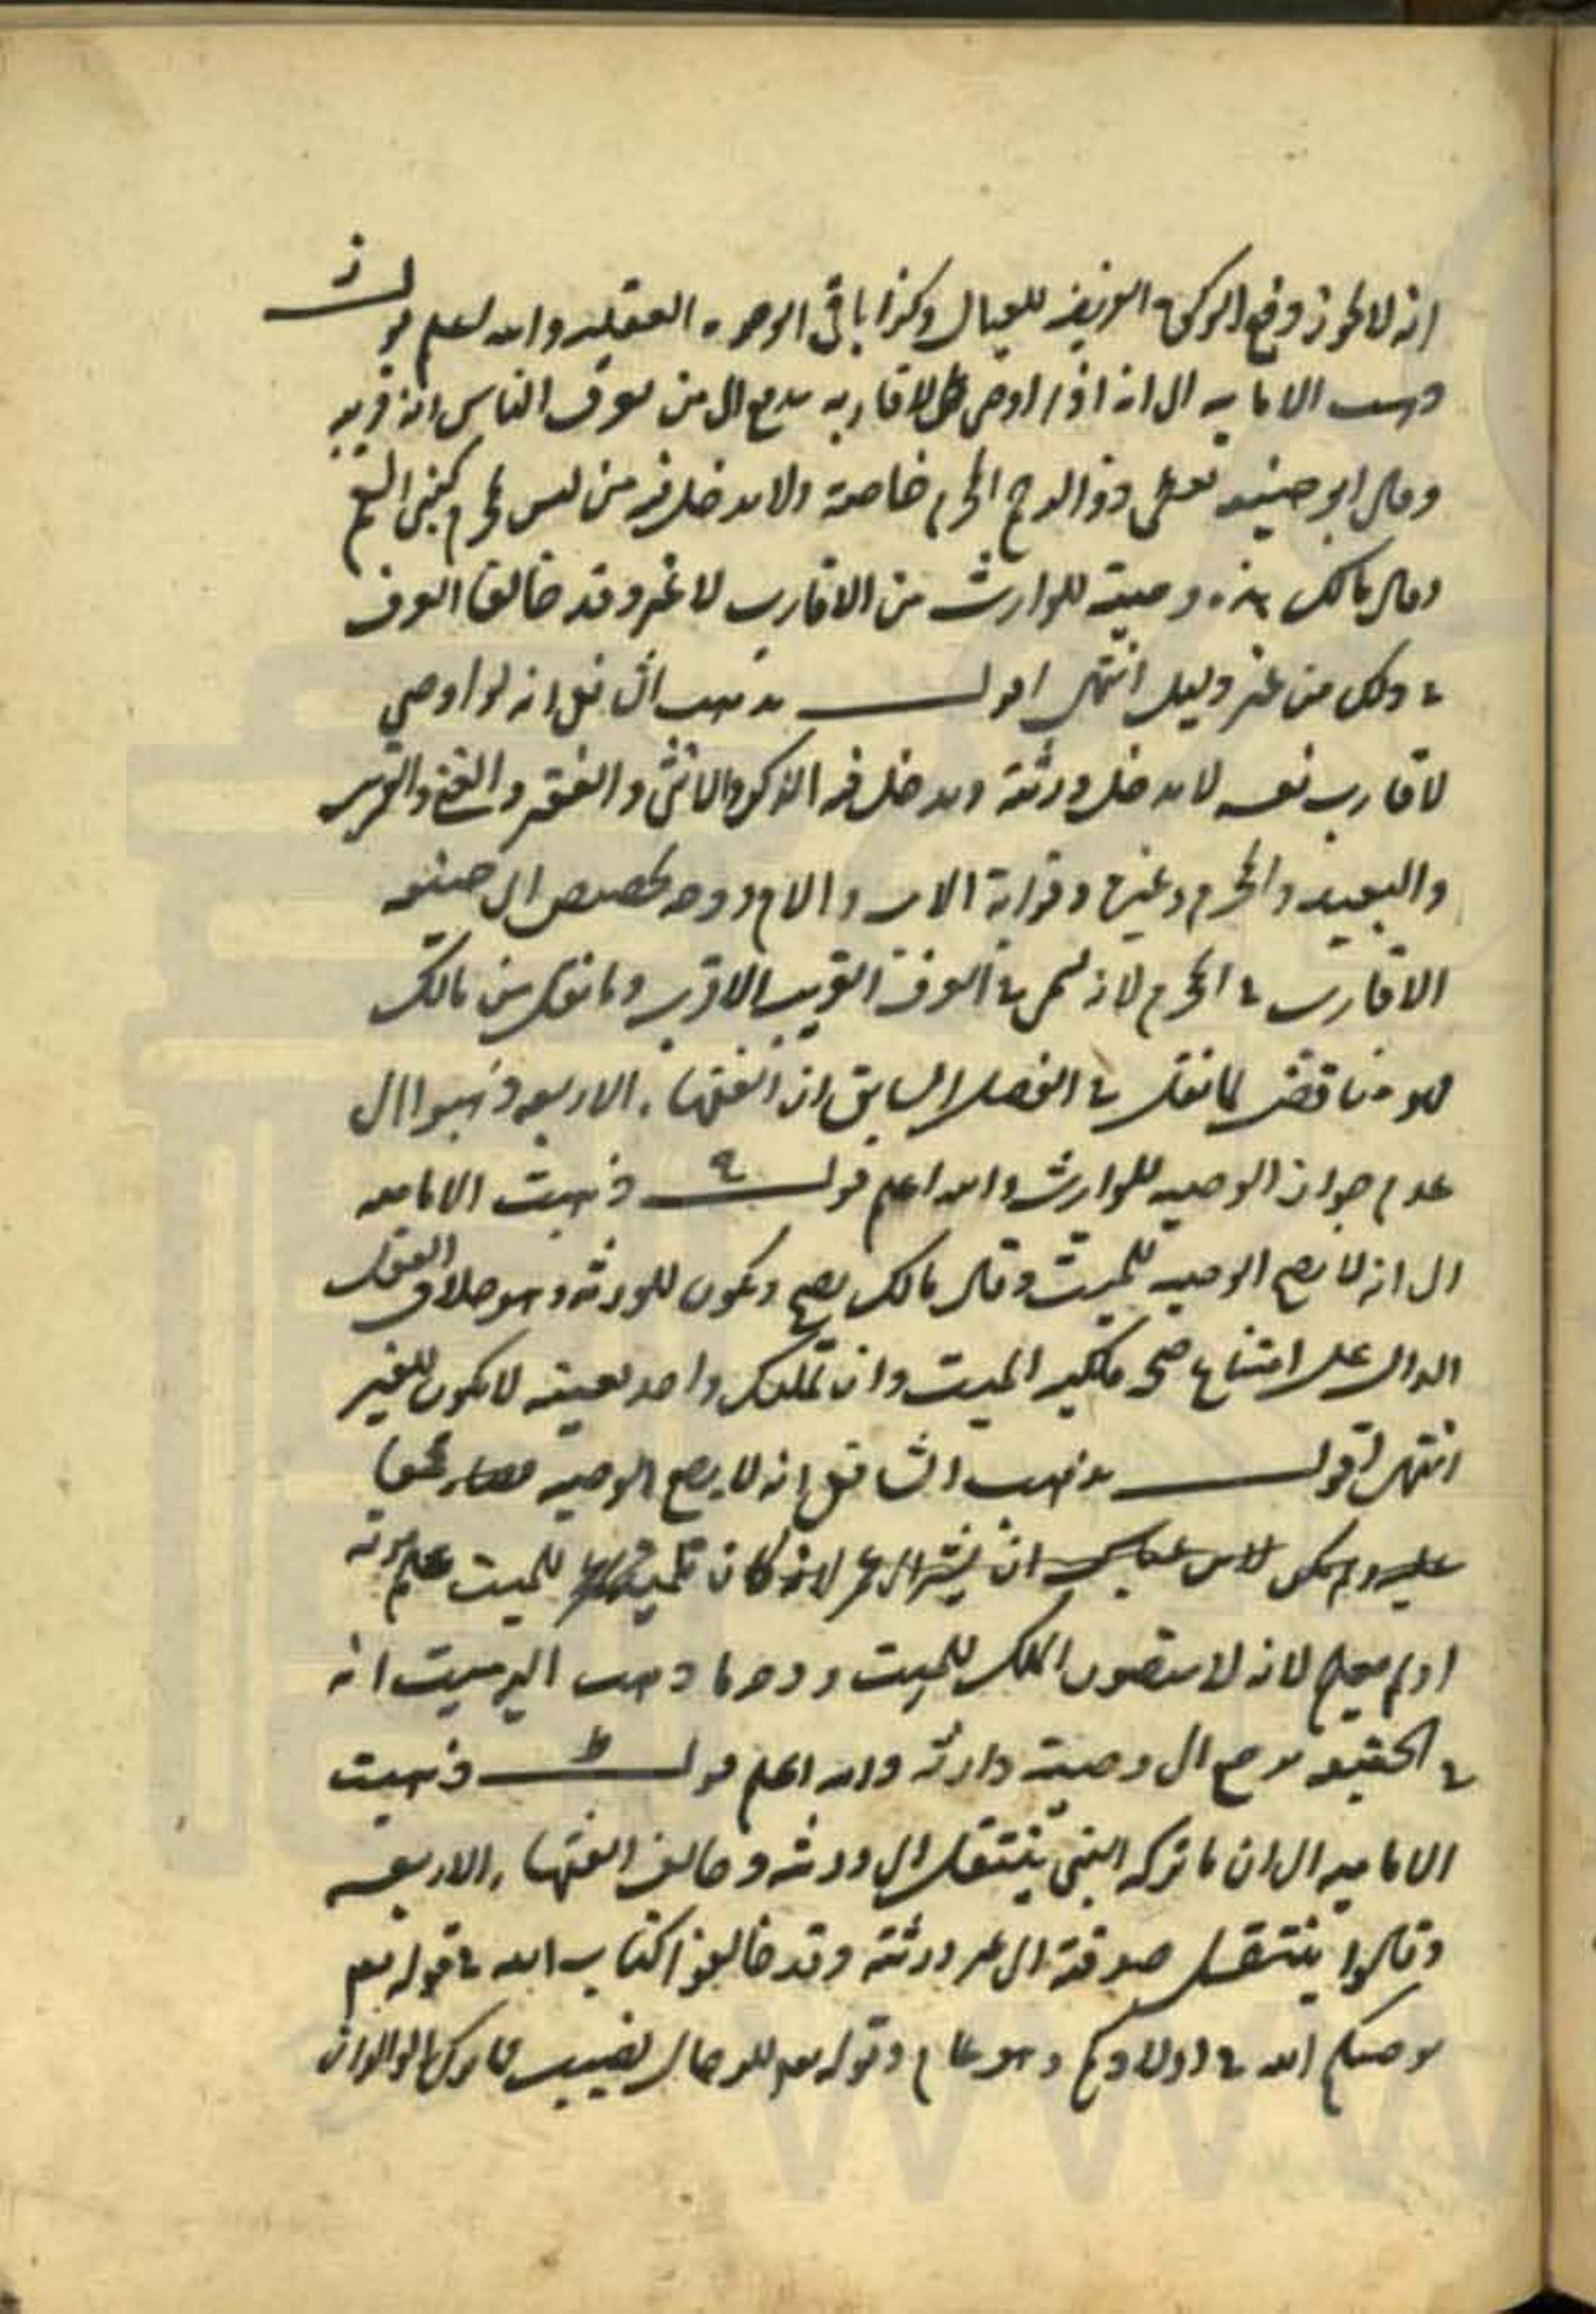 انه لا يجوز دفع الزكوة الفريضه للعيال وكذا باقى الوجوه العقليه والله اعلم قولـــ ز
ذهبت الاماميه الى انه اذا اوصى لاقاربه يدفع الى من يعرف الناس انه قريبه
وقال ابو حنيفه يعطى ذو الرحم المحرم خاصة ولا يدخل فيه من ليس بمحرم كبنى العم
وقال مالك هذه وصيته للوارث من الاقارب لا غير وقد خالفا العرف
فى ذلك من غير دليل انتهى اقولـــ مذهب الشافعى انه لو اوصى
لاقارب نفسه لا يدخل ورثته ويدخل فيه الذكر والانثى والفقير والغنى والقريب
والبعيد والمحرم وغيره وقرابة الاب والام ووجه تخصيص ابى حنيفه
الاقارب فى المحرم لانه يسمى فى العرف القريب الاقرب وما نقل من مالك
فهو مناقض لما نقل فى الفصل السابق ان الفقهاء الاربعه ذهبوا الى
عدم جواز الوصيه للوارث والله اعلم قولـــ ح ذهبت الاماميه
الى انه لا يصح الوصيه للميت وقال مالك يصح ويكون للورثه وهو خلاف العقل
الدال على امتناع صحه ملكيه الميت وان تملك واحد بعينه لا يكون للغير
انتهى اقولـــ مذهب الشافعى انه لا يصح الوصيه
للميت علم موته
او لم يعلم لانه لا يتصور الملك للميت ووجه ما ذهب اليه ميت انه
فى الحقيقه يرجع الى وصيته وارثه والله اعلم قولـــ ط ذهبت
الاماميه الى ان ما تركه النبى ينتقل الى ورثته وخالف الفقهاء الاربعه
وقالوا ينتقل صدقة الى غير ورثته وقد خالفوا كتاب الله فى قوله تعم
يوصيكم الله فى اولادكم وهو عام وقوله تعم للرجال نصيب مما ترك الوالدان